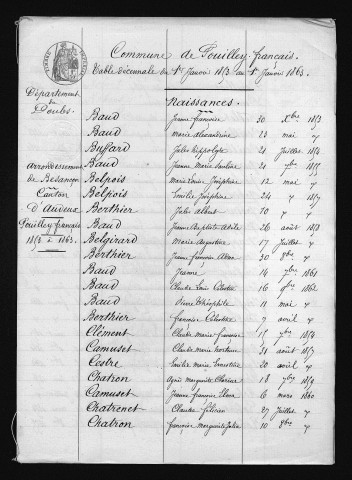 Commune de Pouilley-français.
Table décennale du 1er Janvier 1853 au 1er Janvier 1863.
Département
du
Doubs.
Arrondissement
de Besançon
Canton
d'Audeux
Pouilley-français
1853 à 1863.
Naissances.
Baud Jeanne françoise 30 Xbre 1853
Baud Marie Alexandrine 23 mai "
Buffard Jules Hippolyte 21 Juillet 1854
Baud Jeanne Marie 21 1855
Belpois Marie Louise Joséphine 12 mai "
Belpois Emilie Joséphine 24 "
Berthier Jules Albert 10 "
Baud Jeanne Baptiste 26 août 1853
Belgirard Marie Augustine 17 Juillet "
Berthier Jean françois 30 8bre "
Baud Jeanne 14 7bre 1861
Baud Claude Louis 16 9bre 1862
Baud Théophile 11 mai "
Berthier françoise 7 avril "
Clément Claude Marie françoise 15 7bre 1854
Camuset Claude Marie 31 août 1857
Cestre Emilie Marie Ernestine 20 avril "
Chatron Marguerite 18 7bre 1859
Camuset Jeanne françoise 6 mars 1860
Chatrenet Claude félicien 27 Juillet "
Chatron françoise Marguerite Julie 10 8bre "